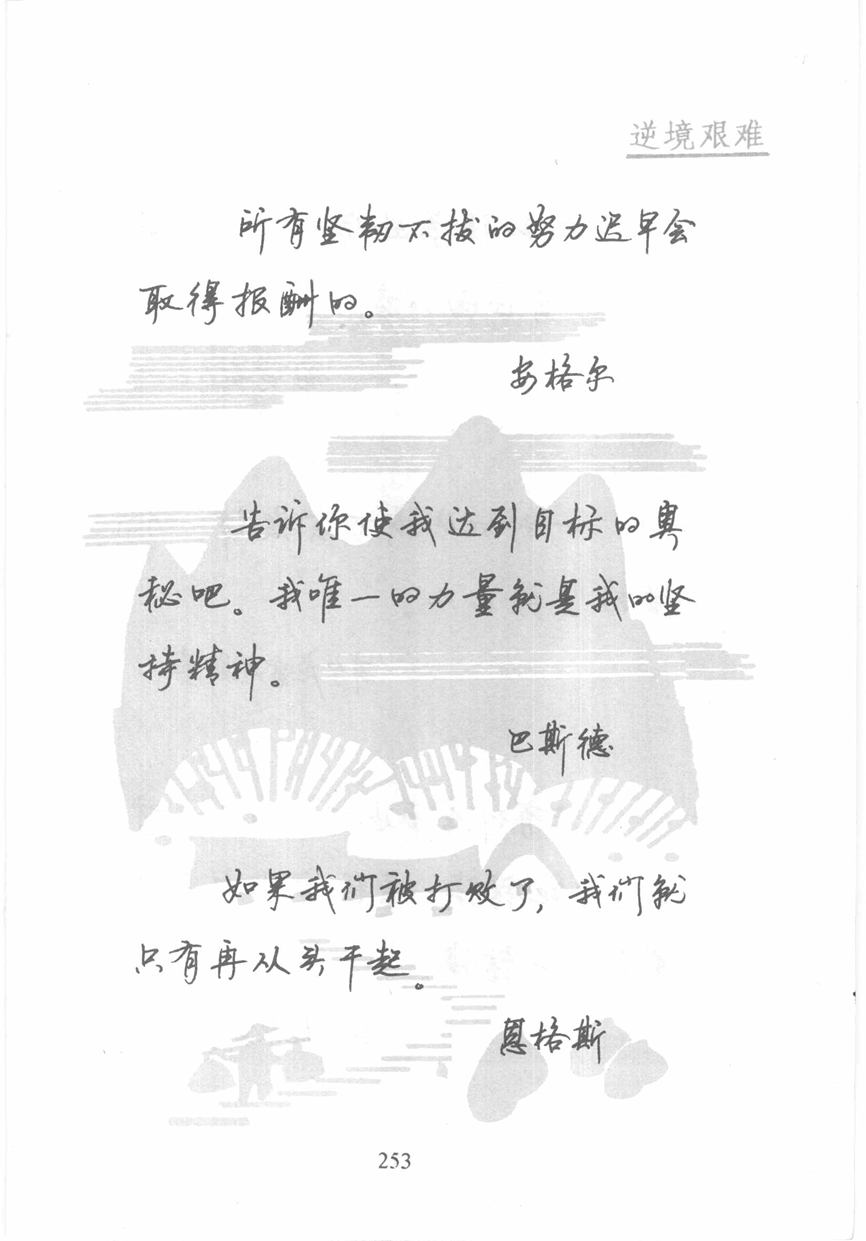 逆境艰难
所有坚韧不拔的努力迟早会
取得报酬的。
安格尔
告诉你使我达到目标的奥
秘吧。我唯一的力量就是我的坚
持精神。
巴斯德
如果我们被打败了，我们就
只有再从头干起。
恩格斯
253